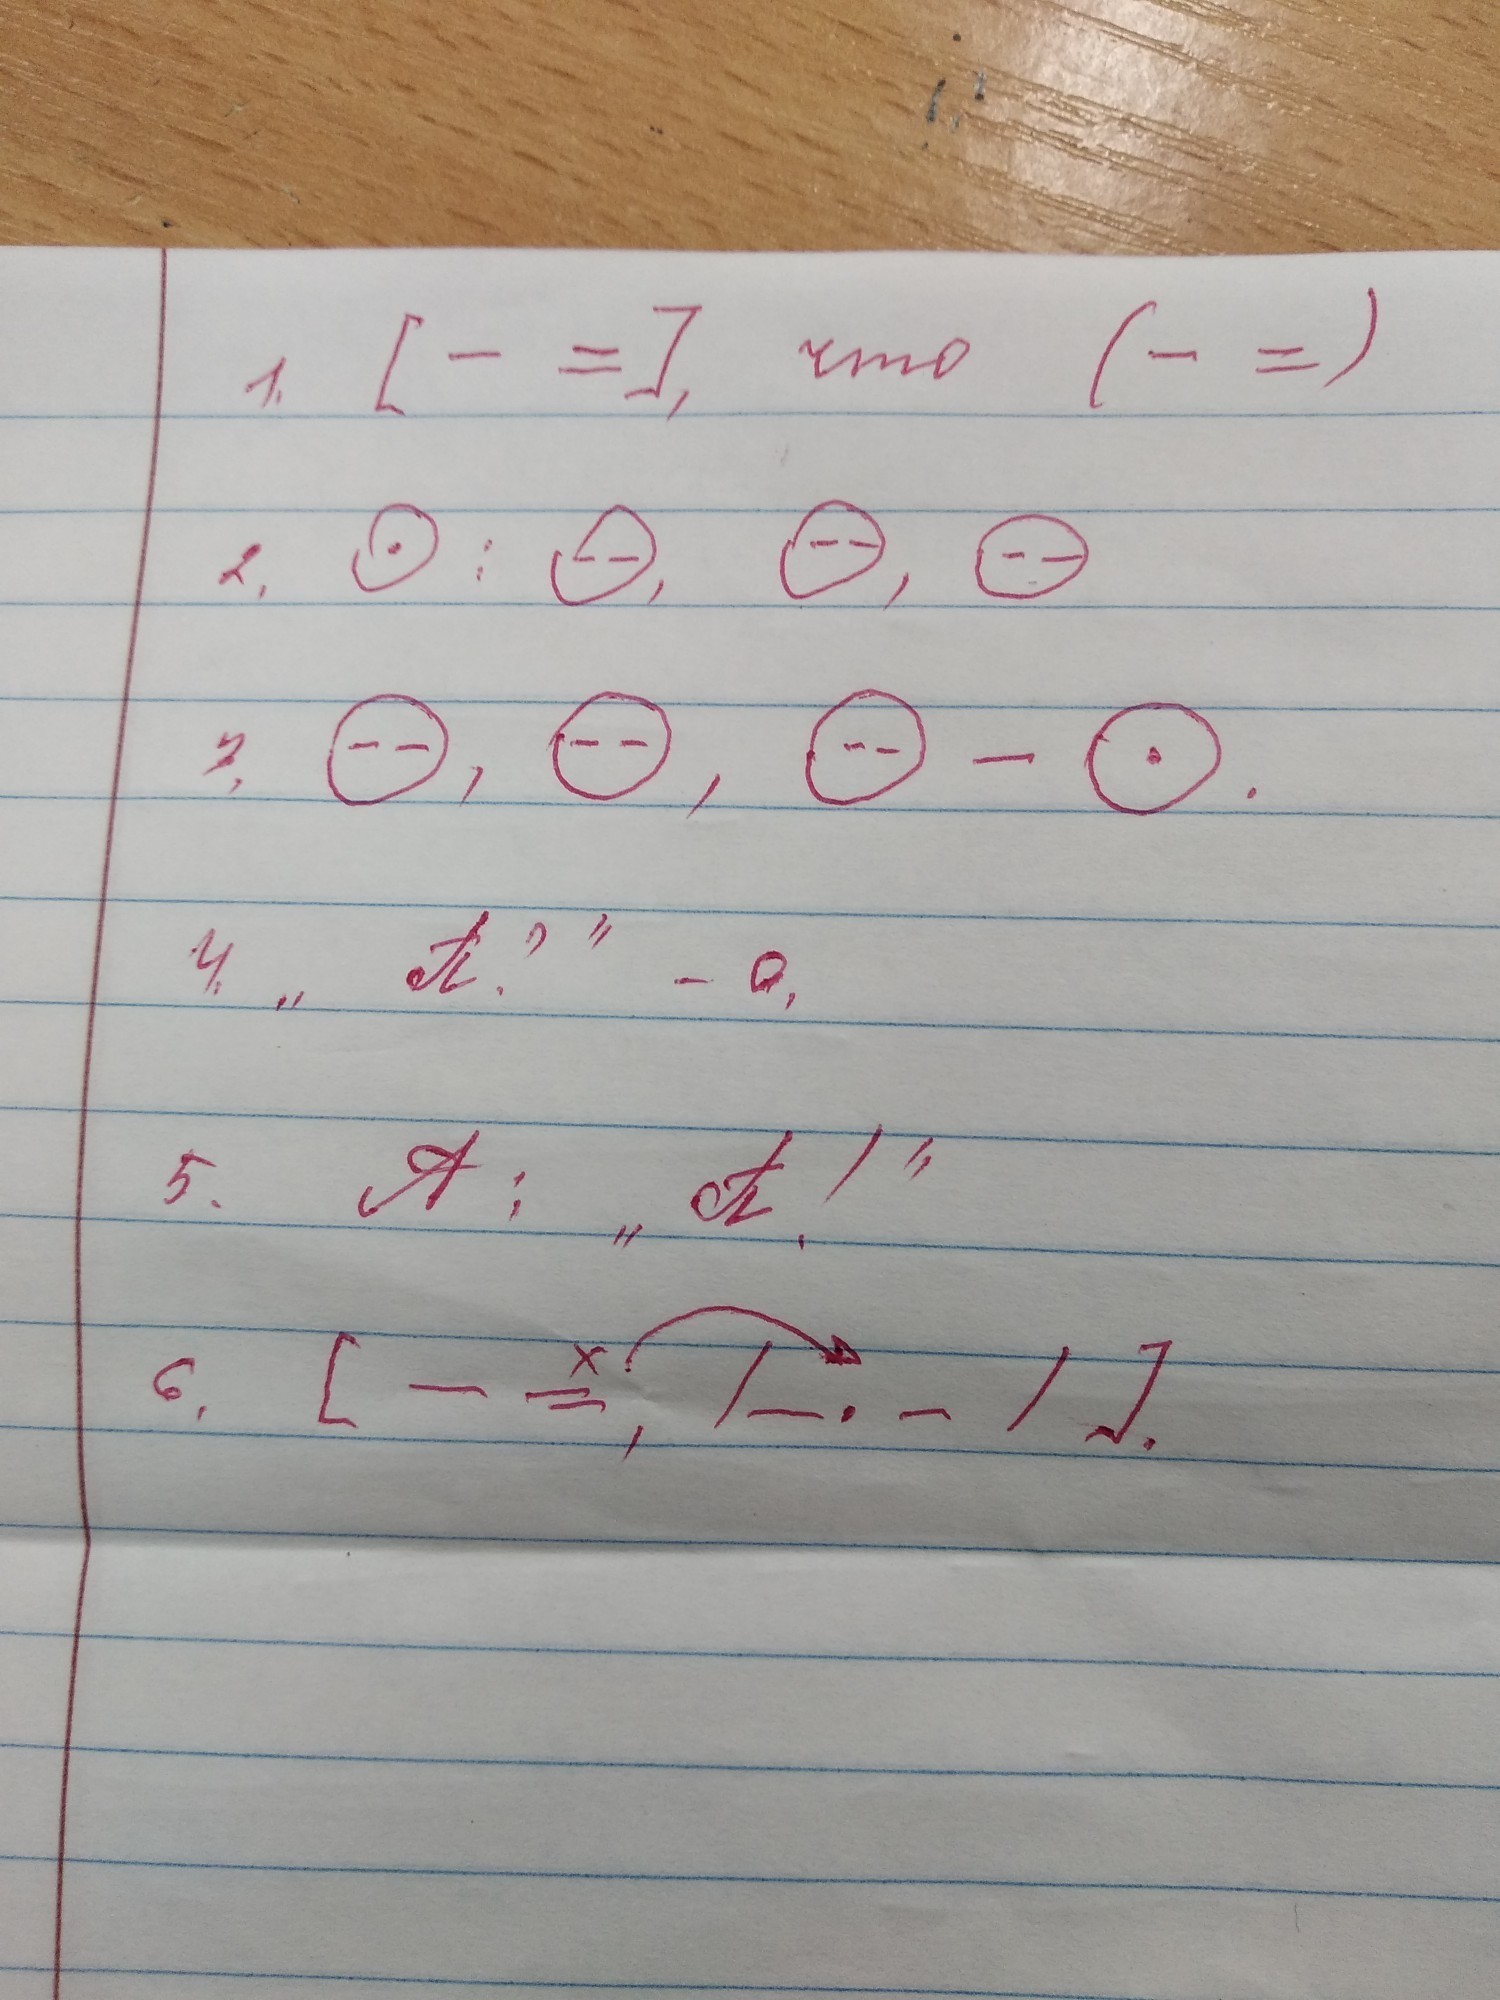 1. [ – = ], что ( – = )
2. ⊙ : ⊖, ⊖, ⊖
3. ⊖, ⊖, ⊖ – ⊙.
4. „ П? ” – а.
5. А: „ П! ”
6. [ – =, / _ . _ / ].